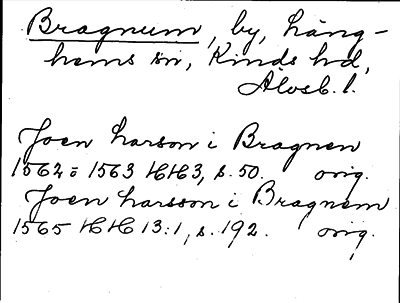 Bragnum, by, Läng-
hems sn, Kinds hd,
Älvsb. l.
Joen Larson i Bragnen
1562 o 1563 HH 3, s. 50. orig.
Joen Larsson i Bragnem
1565 HH 13:1, s. 192. orig.